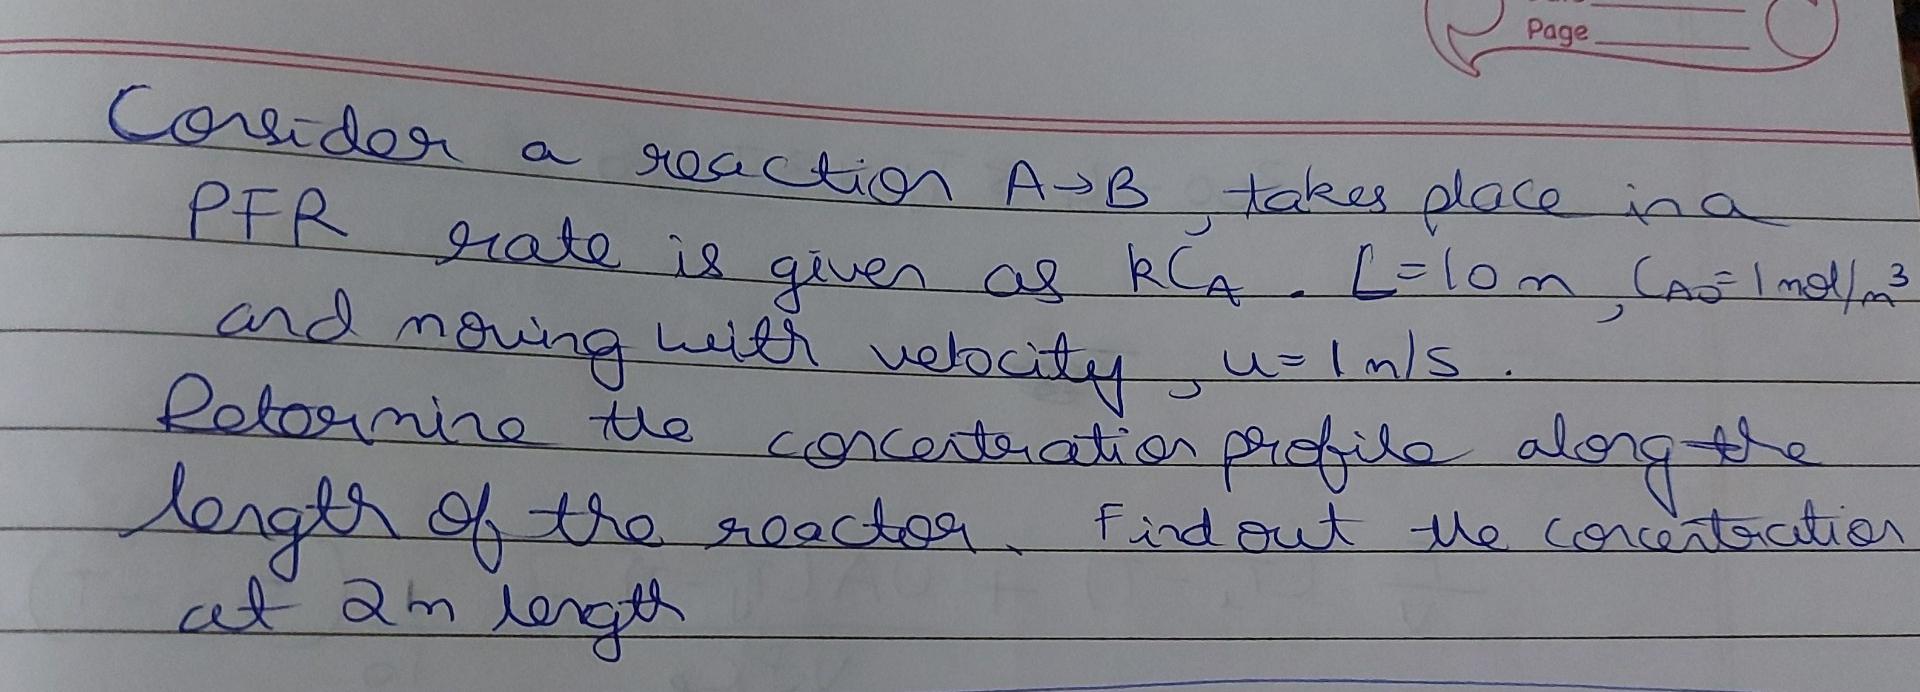 Page
Consider a reaction A→B, takes place in a
PFR rate is given as kCA. L=10m, CA0=1mol/m³
and moving with velocity, u=1m/s.
Determine the concentration profile along the
length of the reactor. Find out the concentration
at 2m length